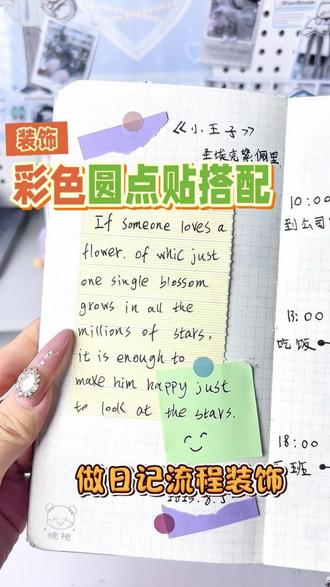 《小王子》
圣埃克絮佩里
装饰
彩色圆点贴搭配
If someone loves a
flower, of whic just
one single blossom
grows in all the
millions of stars,
it is enough to
make him happy just
to look at the stars.
10:00
到公司
13:00
吃饭
18:00
班
做日记流程装饰
桃桃